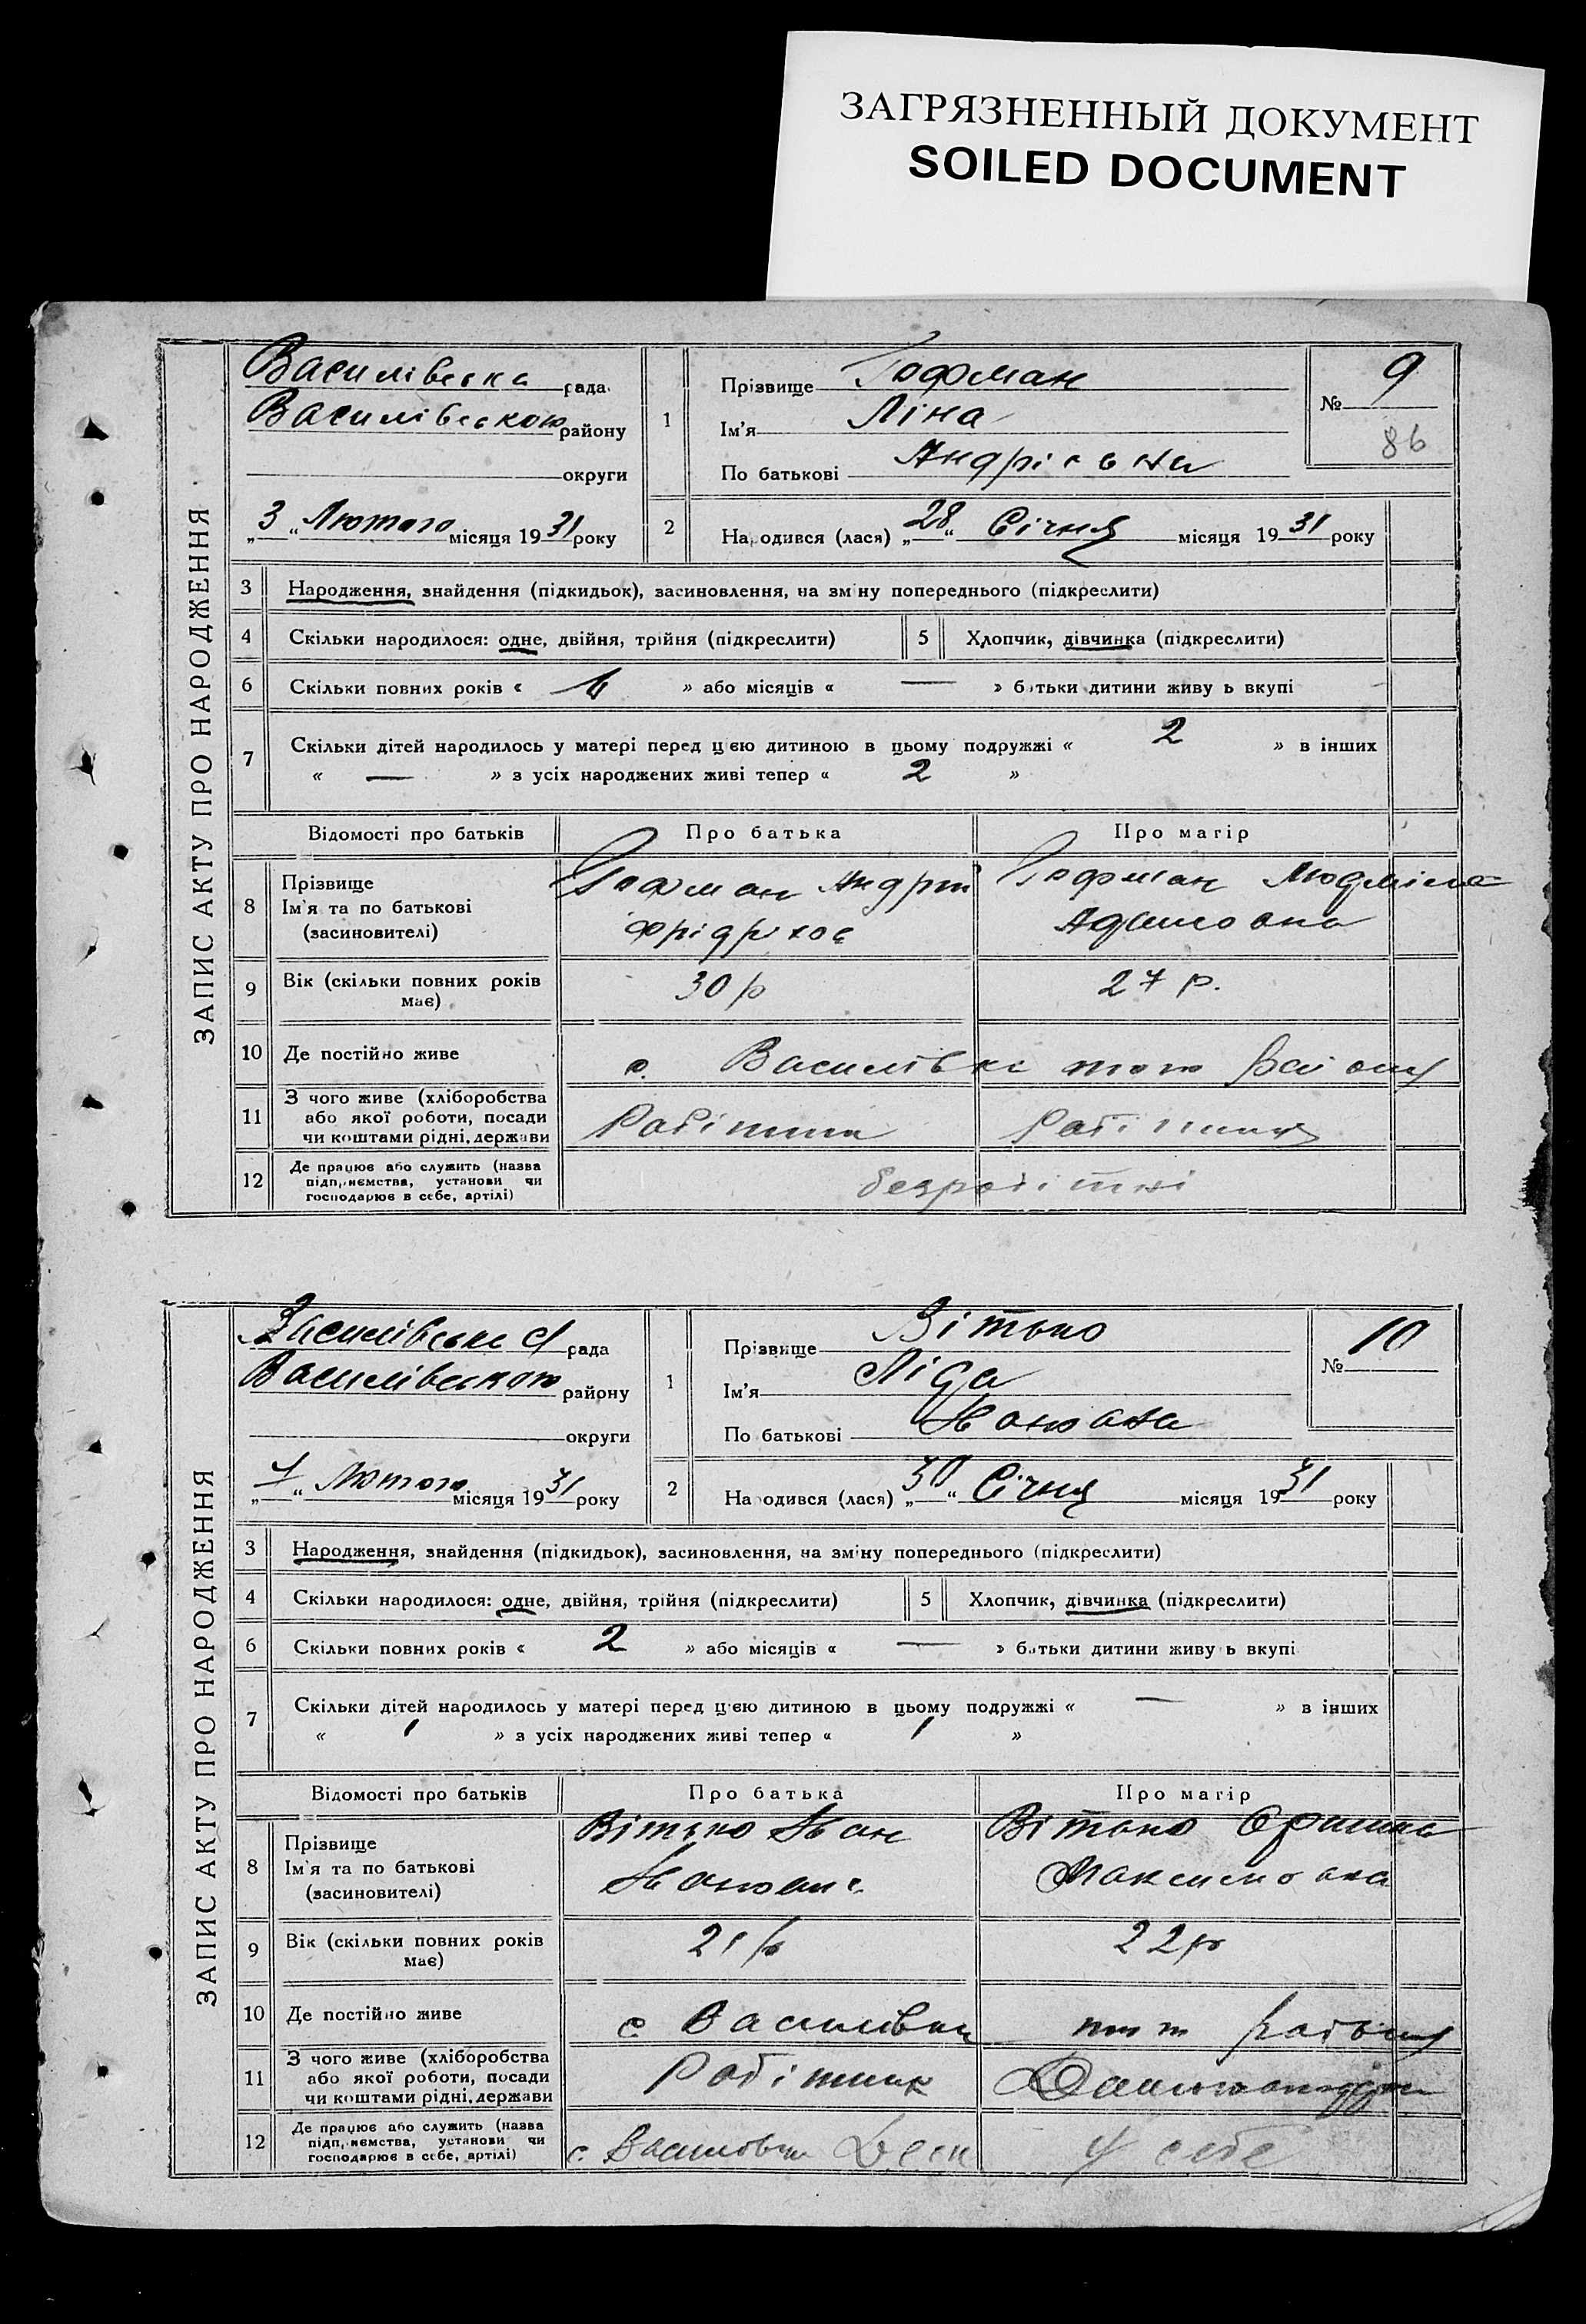 ЗАГРЯЗНЕННЫЙ ДОКУМЕНТ
SOILED DOCUMENT
ЗАПИС АКТУ ПРО НАРОДЖЕННЯ
Василівська рада
Василівського району
округи
„3“ Лютого місяця 1931 року
1
Прізвище Гофман
Ім'я Ліна
По батькові Андрієвна
№ 9
86
2
Народився (лася) „28“ Січня місяця 1931 року
3 Народження, знайдення (підкидьок), засиновлення, на зміну попереднього (підкреслити)
4 Скільки народилося: одне, двійня, трійня (підкреслити)
5 Хлопчик, дівчинка (підкреслити)
6 Скільки повних років « » або місяців « — » батьки дитини живуть вкупі
7 Скільки дітей народилось у матері перед цією дитиною в цьому подружжі « 2 » в інших
« — » з усіх народжених живі тепер « 2 »
Відомості про батьків Про батька Про матір
8 Прізвище
Ім'я та по батькові
(засиновителі)
Гофман Андрій
Фрідріхов
Гофман Людміла
Адамовна
9 Вік (скільки повних років
має)
30 р
27 р.
10 Де постійно живе
с. Василівка того району
11 З чого живе (хліборобства
або якої роботи, посади
чи коштами рідні, держави
Робітник
Робітниця
12 Де працює або служить (назва
підприємства, установи чи
господарює в себе, артілі)
безробітні
ЗАПИС АКТУ ПРО НАРОДЖЕННЯ
Василівська с/ рада
Василівського району
округи
Лютого місяця 1931 року
1
Прізвище Вітько
Ім'я Ліда
По батькові Івановна
№ 10
2
Народився (лася) „30“ Січня місяця 1931 року
3 Народження, знайдення (підкидьок), засиновлення, на зміну попереднього (підкреслити)
4 Скільки народилося: одне, двійня, трійня (підкреслити)
5 Хлопчик, дівчинка (підкреслити)
6 Скільки повних років « 2 » або місяців « — » батьки дитини живуть вкупі
7 Скільки дітей народилось у матері перед цією дитиною в цьому подружжі « — » в інших
« 1 » з усіх народжених живі тепер « 1 »
Відомості про батьків Про батька Про матір
8 Прізвище
Ім'я та по батькові
(засиновителі)
Вітько Іван
Іванович
Вітько Оришка
Максимовна
9 Вік (скільки повних років
має)
21 р
22 р
10 Де постійно живе
с Василівка того району
11 З чого живе (хліборобства
або якої роботи, посади
чи коштами рідні, держави
Робітник
Домогосподарка
12 Де працює або служить (назва
підприємства, установи чи
господарює в себе, артілі)
с. Василівка
У себе